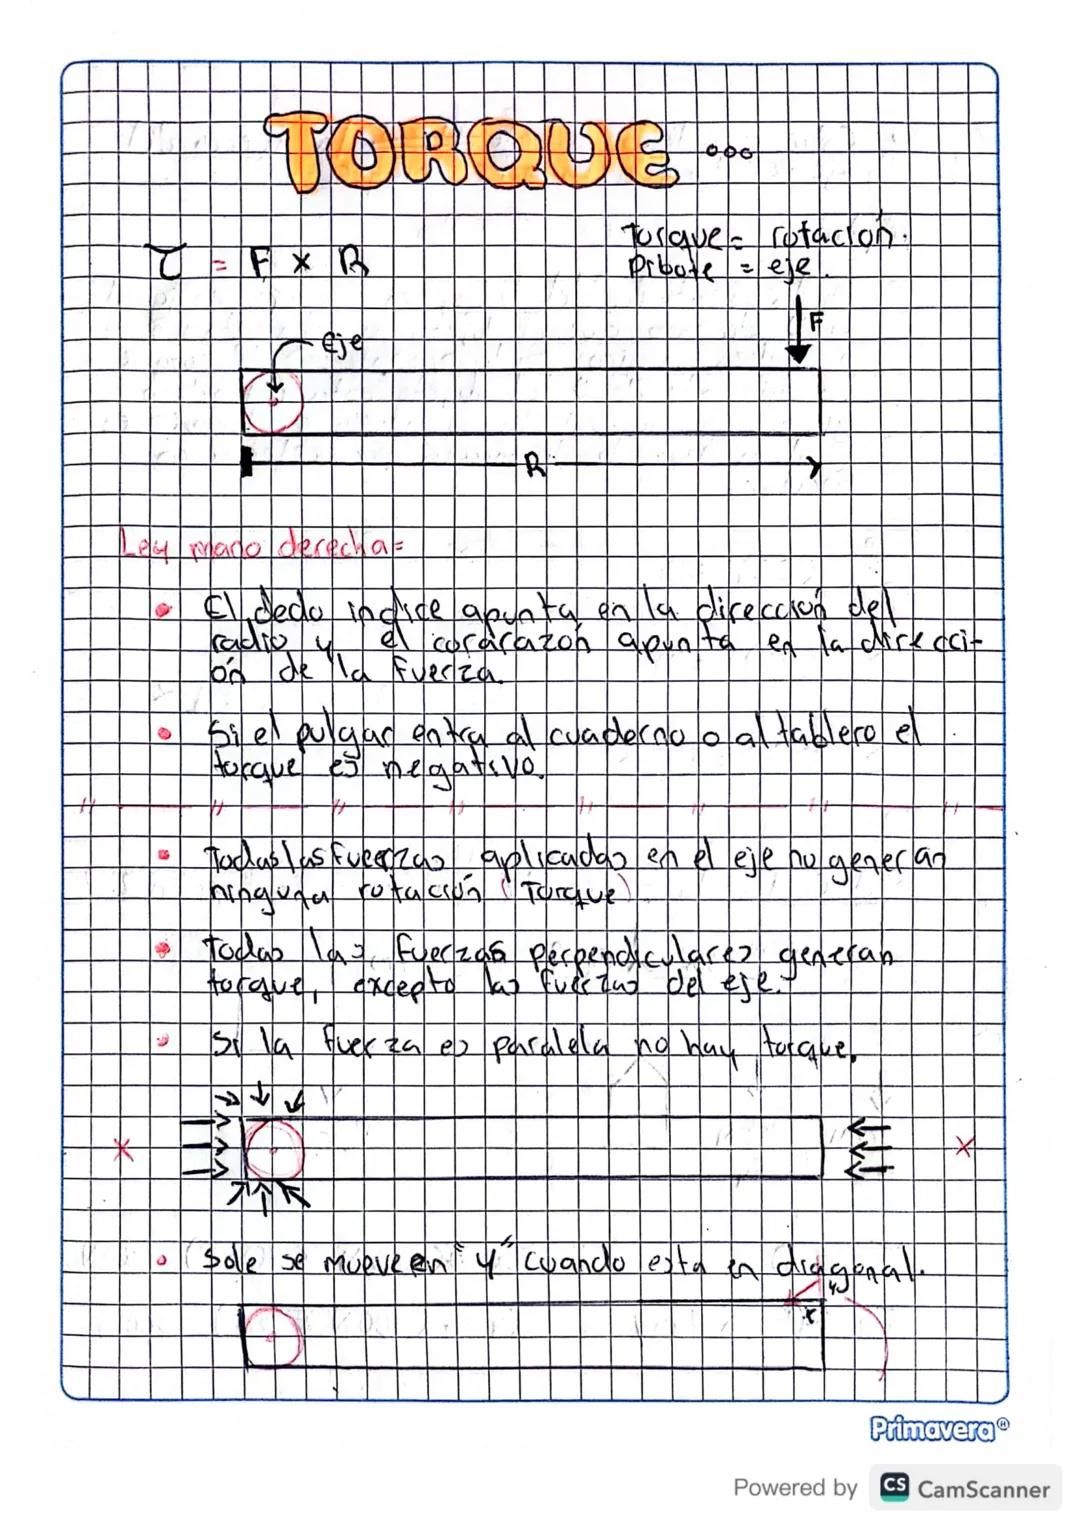 TORQUE...
Torque = rotación.
τ = F × R
Pibote = eje.
F
Eje
R
Ley mano derecha=
• El dedo indice apunta en la dirección del
radio y el corarazón apunta en la direcci-
ón de la fuerza.
• Si el pulgar entra al cuaderno o al tablero el
torque es negativo.
• Todas las fuerzas aplicadas en el eje no generan
ninguna rotación (Torque)
• Todas las fuerzas perpendiculares generan
torque, excepto las fuerzas del eje.
• Si la fuerza es paralela no hay torque.
x
x
• Sole se mueve en "y" cuando esta en diagonal.
y
x
Primavera®
Powered by CS CamScanner